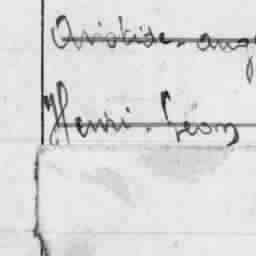 Aristide-aug
Henri-Léon